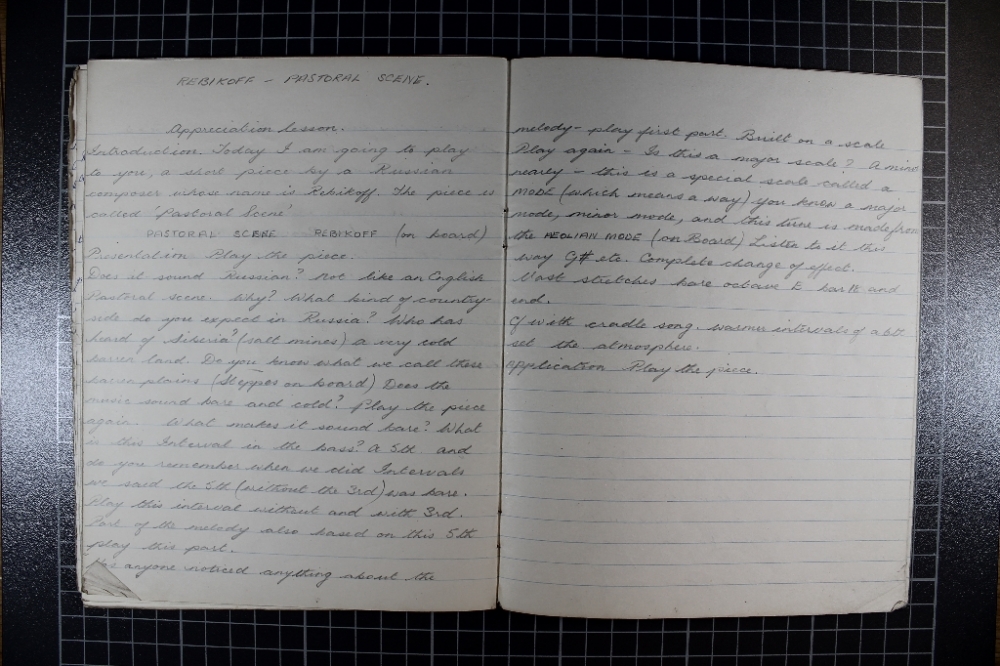 REBIKOFF - PASTORAL SCENE.
Appreciation lesson.
Introduction. Today I am going to play
to you, a short piece by a Russian
composer whose name is Rebikoff. The piece is
called 'Pastoral Scene'
PASTORAL SCENE REBIKOFF (on board)
Presentation Play the piece.
Does it sound Russian? Not like an English
Pastoral scene. Why? What kind of country-
side do you expect in Russia? Who has
heard of Siberia? (salt mines) a very cold
barren land. Do you know what we call these
barren plains (Steppes on board) Does the
music sound bare and cold? Play the piece
again. What makes it sound bare? What
is this Interval in the bass? A 5th and
do you remember when we did Intervals
we said the 5th (without the 3rd) was bare.
Play this interval without and with 3rd.
Part of the melody also based on this 5th
play this part.
Has anyone noticed anything about the
melody - play first part. Built on a scale
Play again - Is this a major scale? A minor
nearly - this is a special scale called a
MODE (which means a way) you know a major
mode, minor mode, and this tune is made from
the AEOLIAN MODE (on Board) Listen to it this
way G# etc. Complete change of effect.
Vast stretches bare octave E bar and
end.
Cf with cradle song. warmer intervals of a 6th
set the atmosphere.
Application Play the piece.